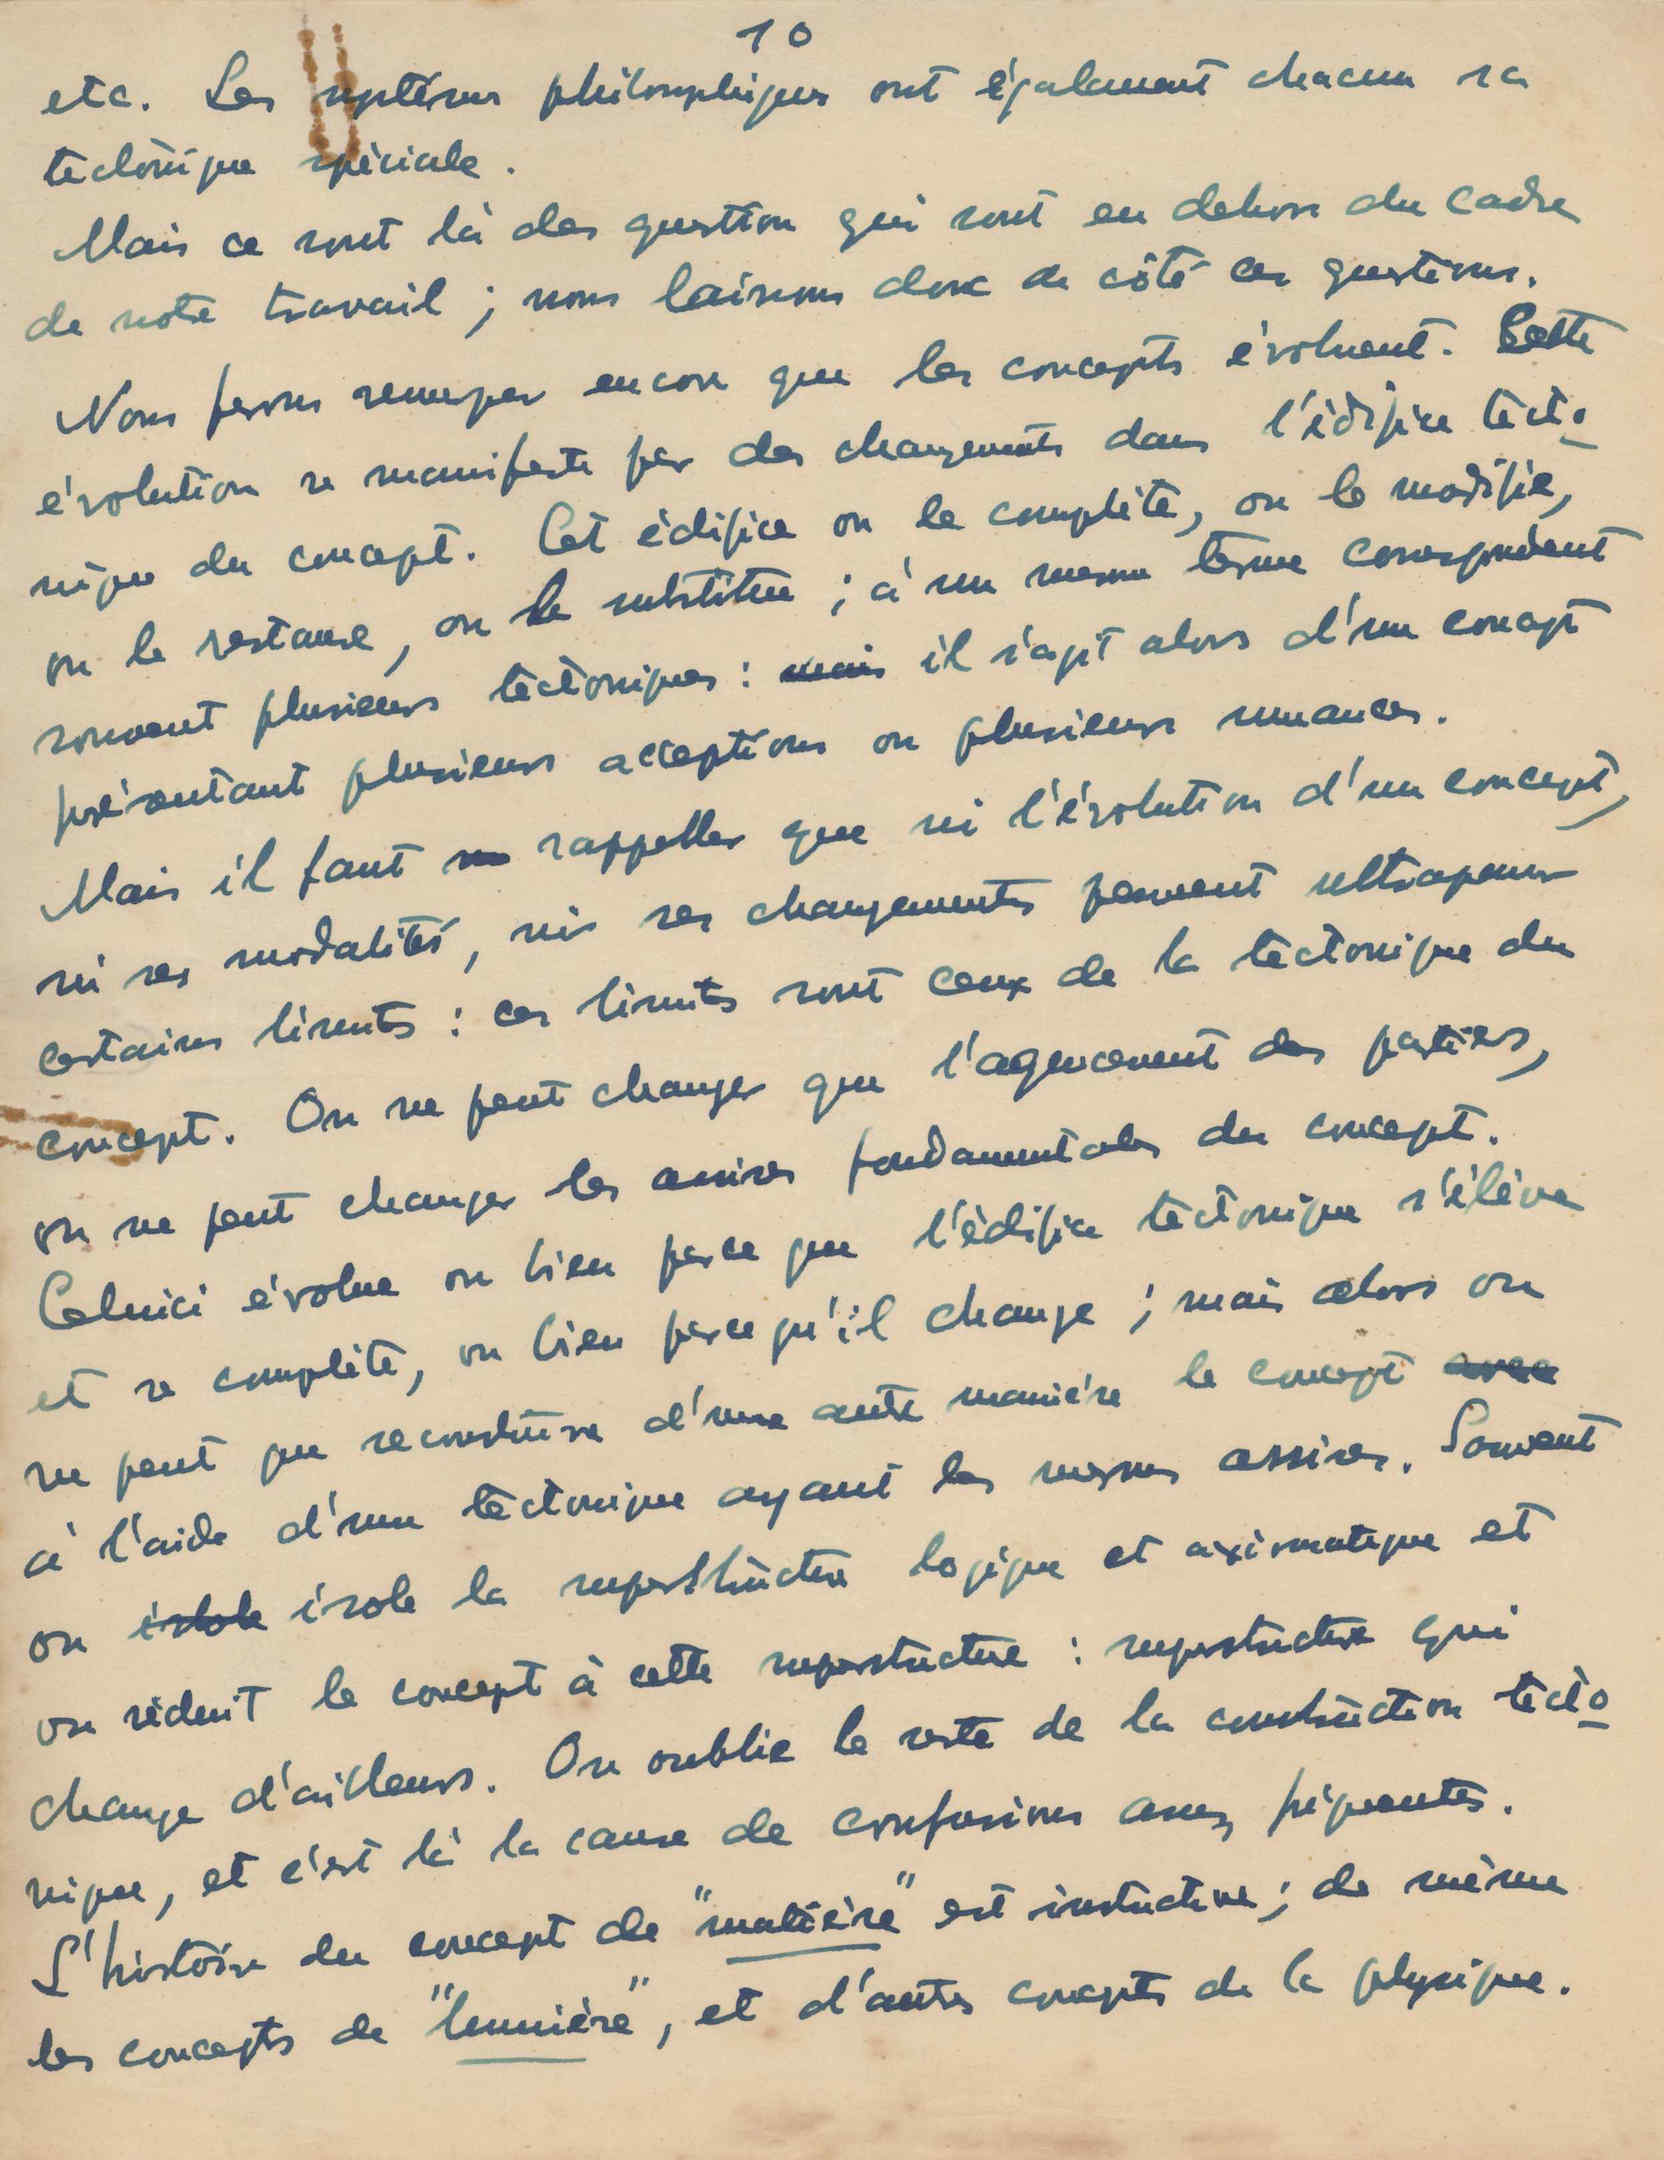 10
etc. Les systèmes philosophiques ont également chacun sa
tectonique spéciale.
Mais ce sont là des question qui sont en dehors du cadre
de notre travail ; nous laissons donc de côté ces questions.
Nous ferons remarquer encore que les concepts évoluent. Cette
évolution se manifeste par des changements dans l'édifice tecto
nique du concept. Cet édifice on le complète, on le modifie,
on le restaure, on le substitue ; à un meme terme correspondent
souvent plusieurs tectoniques : mais il s'agit alors d'un concept
présentant plusieurs acceptions ou plusieurs nuances.
Mais il faut se rappeller que ni l'évolution d'un concept,
ni ses modalités, ni ses changements peuvent ultrapasser
certains limites : ces limites sont ceux de la tectonique du
concept. On ne peut changer que l'agencement des parties,
on ne peut changer les assises fondamentales du concept.
Celuici évolue ou bien parce que l'édifice tectonique s'élève
et se complète, ou bien parce qu'il change ; mais alors on
ne peut que reconstruire d'une autre manière le concept avec
à l'aide d'une tectonique ayant les memes assises. Souvent
on isole la superstructure logique et axiomatique et
on réduit le concept à cette superstructure : superstructure qui
change d'ailleurs. On oublie le reste de la construction tecto
nique, et c'est là la cause de confusions assez fréquentes.
L'histoire du concept de "matière" est instructive ; de même
les concepts de "lumière", et d'autres concepts de la physique.